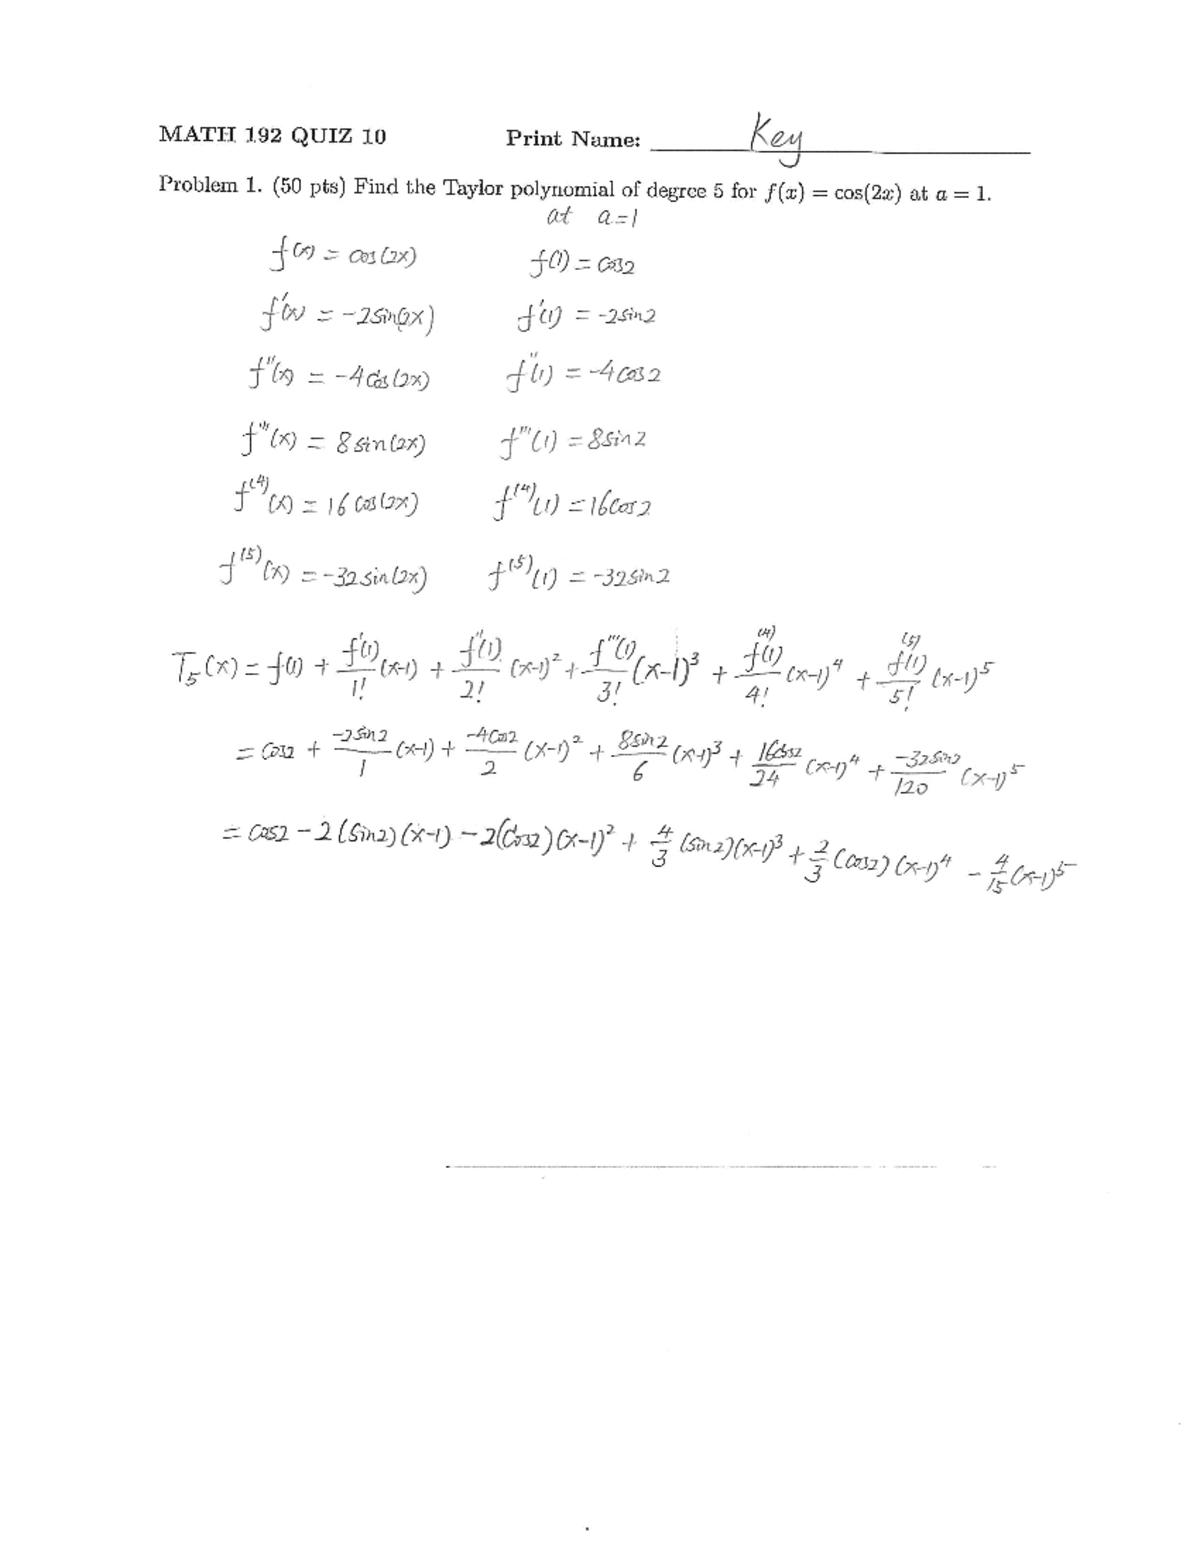 MATH 192 QUIZ 10 Print Name: Key
Problem 1. (50 pts) Find the Taylor polynomial of degree 5 for f(x) = cos(2x) at a = 1.
at a=1
f(x) = cos(2x) f(1) = cos2
f'(x) = -2sin(2x) f'(1) = -2sin2
f''(x) = -4cos(2x) f''(1) = -4cos2
f'''(x) = 8sin(2x) f'''(1) = 8sin2
f^(4)(x) = 16cos(2x) f^(4)(1) = 16cos2
f^(5)(x) = -32sin(2x) f^(5)(1) = -32sin2
T₅(x) = f(1) + f'(1)/1! (x-1) + f''(1)/2! (x-1)² + f'''(1)/3! (x-1)³ + f^(4)(1)/4! (x-1)⁴ + f^(5)(1)/5! (x-1)⁵
= cos2 + -2sin2/1 (x-1) + -4cos2/2 (x-1)² + 8sin2/6 (x-1)³ + 16cos2/24 (x-1)⁴ + -32sin2/120 (x-1)⁵
= cos2 - 2(sin2)(x-1) - 2(cos2)(x-1)² + 4/3 (sin2)(x-1)³ + 2/3 (cos2)(x-1)⁴ - 4/15 (x-1)⁵